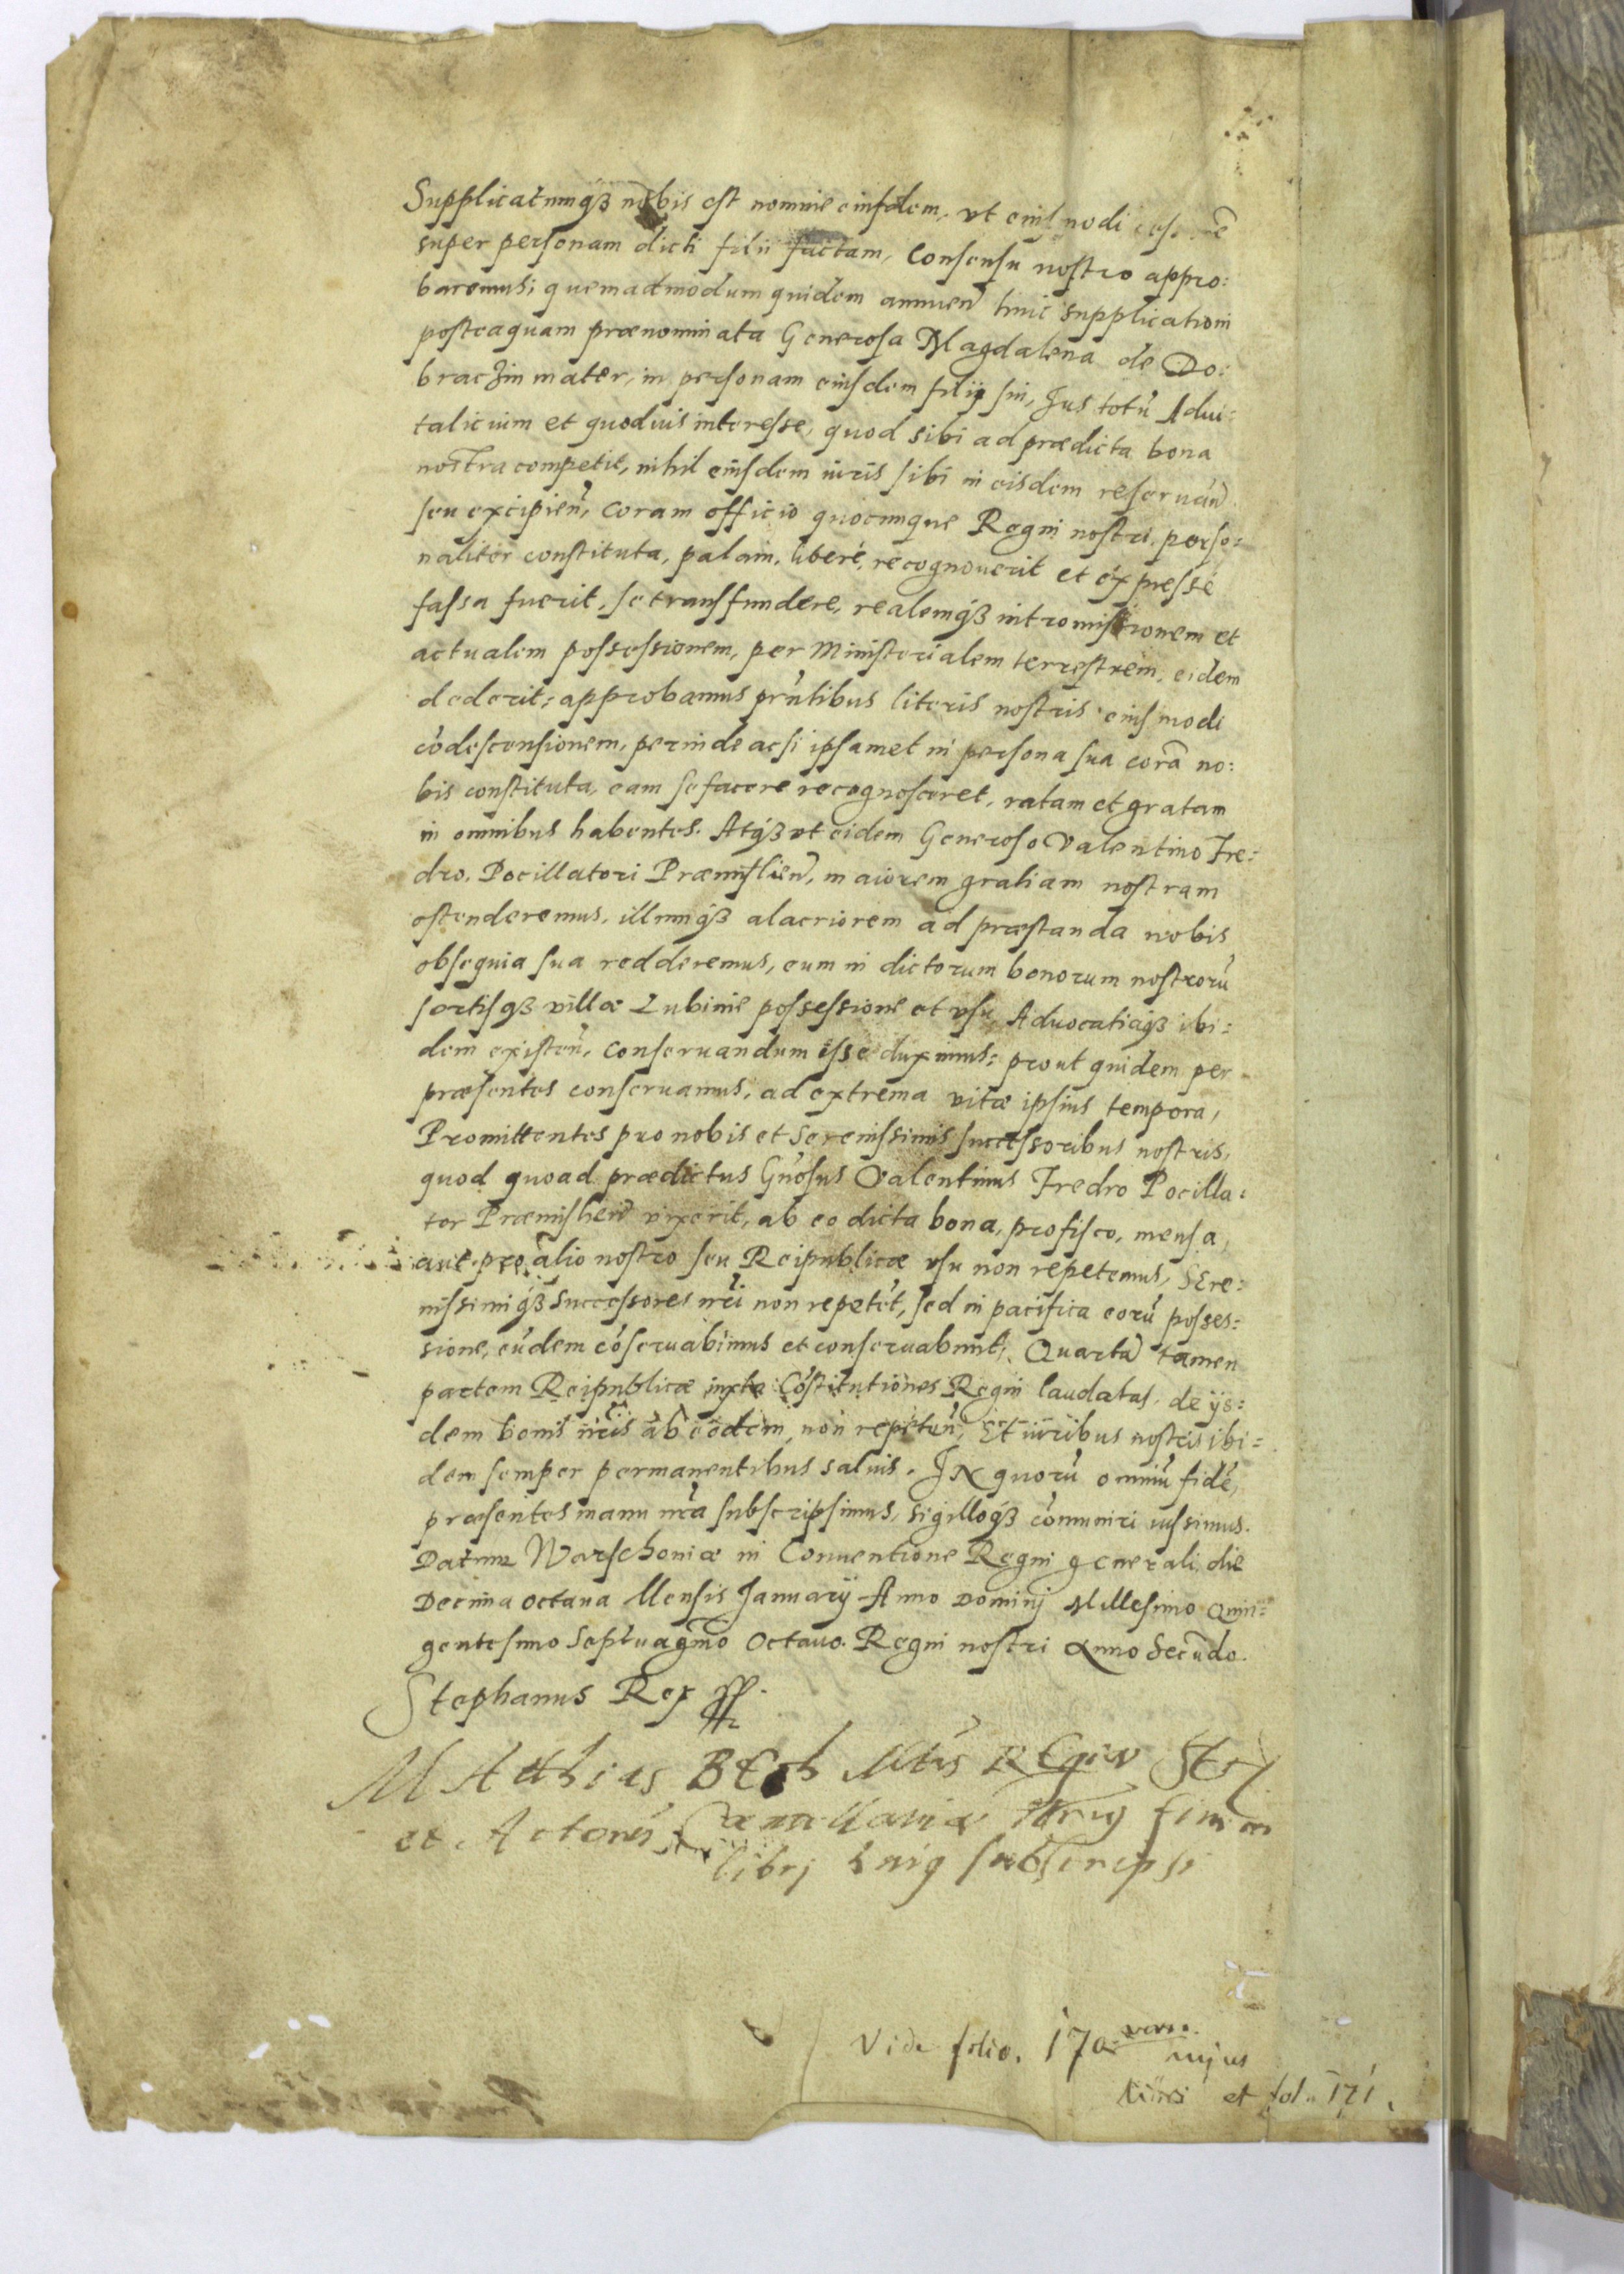 Supplicatumqз nobis est nomine eiusdem, vt eiusmodi
super personam dicti filii factam, Consensu nostro appro:
baremus; quemadmodum quidem annuen̄ huic supplicationi
posteaquam prænominata Generosa Magdalena de Do:
braczin mater, in personam eiusdem filij sui, Jus totū Advi:
talicium et quoduis interesse, quod sibi ad prædicta bona
nostra competit, nihil eiusdem iuris sibi in eisdem reseruan̄
seu excipien̄, coram officio quocunque Regni nostri perso:
naliter constituta, palam, liberè, recognouerit et expressè
fassa fuerit, se transfundere, realemqз intromissionem et
actualem possessionem, per Ministerialem terrestrem, eidem
dederit; approbamus prn̄tibus literis nostris eiusmodi
cōdescensionem, perinde ac si ipsamet in persona sua corā no:
bis constituta, eam se facere recognosceret, ratam et gratam
in omnibus habentes. Atqз vt eidem Generoso Valentino Fre:
dro. Pocillatori Præmislien̄, maiorem gratiam nostram
ostenderemus, illumqз alacriorem ad præstanda nobis
obsequia sua redderemus, eum in dictorum bonorum nostrorū
sortisqз villæ Lubinie possessione et vsu Aduocatiæqз ibi:
dem existen̄, conseruandum esse duximus: prout quidem per
præsentes conseruamus, ad extrema vitæ ipsius tempora,
Promittentes pro nobis et Serenissimis successoribus nostris,
quod quoad prædictus Gn̄osus Valentinus Fredro Pocilla:
tor Præmislien̄ vixerit, ab eo dicta bona, pro fisco, mensa,
aut pro alio nostro seu Reipublicæ vsu non repetemus, SEre:
nissimiqз Successores nr̄i non repetēt, sed in pacifica eorū posses:
sione, eūdem cōseruabimus et conseruabunt; Quarta tamen
partem Reipublicæ iuxta Cōstitutiones Regni laudatas, de ijs:
dem bonis nr̄is ab eodem, non repeten̄, Et iuribus nostris ibi:
dem semper permanentibus saluis. IN quorū omniū fidē,
præsentes manu nr̄a subscripsimus, sigilloqз cōmuniri iussimus.
Datum Warschouiæ in Conuentione Regni generali, die
Decima octaua Mensis Januarij Anno Dominj Millesimo Quin:
gentesimo Septuagmo Octauo. Regni nostri Anno Secūdo.
Stephanus Rex
MAthias
et Actorū Cancellariæ finem
librj subscripsi
Vide folio. 170 verso.
cujus
libri et fol. 171.